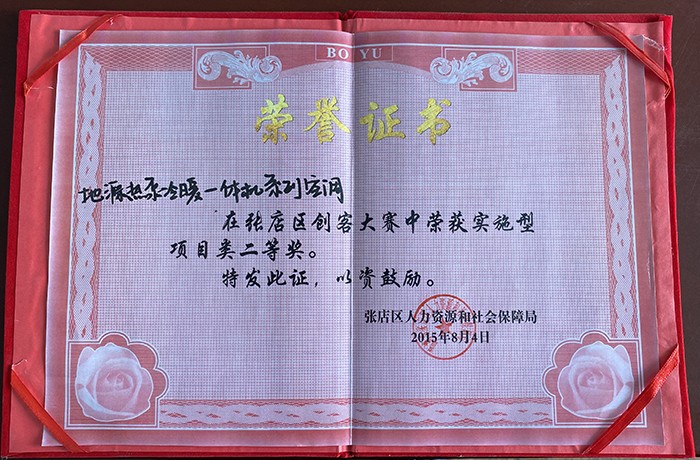 BO YU
荣誉证书
地源热泵冷暖一体机系列空调
在张店区创客大赛中荣获实施型
项目类二等奖。
特发此证，以资鼓励。
张店区人力资源和社会保障局
2015年8月4日